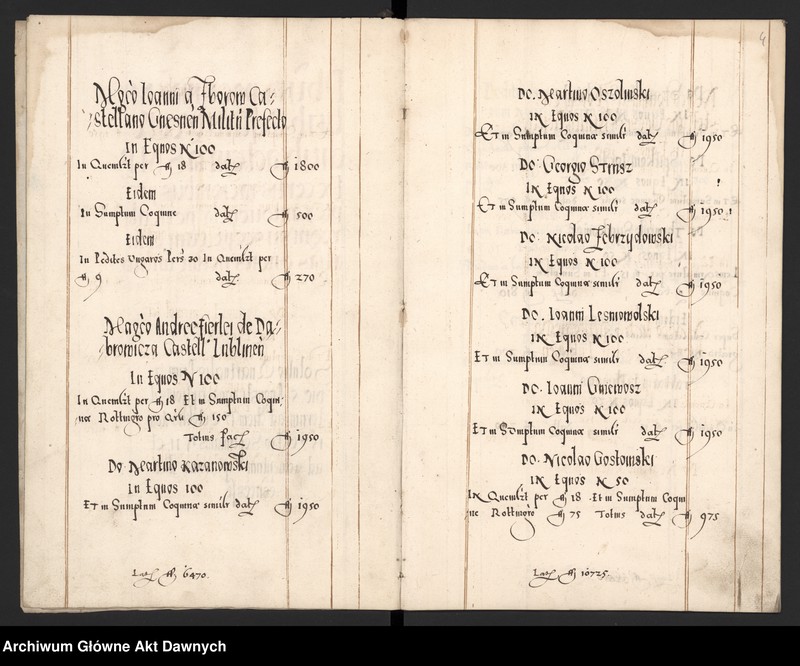 Mgco Ioanni a Zborow Ca-
stellano Gnesnen Militu Prefecto
In Equos N 100
In Quemlzt per ff 18 datz ff 1800
Eidem
In Sumptum Coquine datz ff 500
Eidem
In Pedites Ungaros Pers 30 In Quemlzt per
ff 9 datz ff 270
Magco Andree Firlei de Da-
browicza Castell Lublinen
In Equos N 100
In Quemlzt per ff 18 Et in Sumptum Coqui-
nae Rottmgro pro ff 150
Totius facz ff 1950
Do Martino Kazanowski
In Equos 100
Et in Sumptum Coquinae simili datz ff 1950
Latz ff 6470.
4
Do. Martino Oszolinski
IN Equos N 100
Et in Sumptum Coquinae simili datz ff 1950
Do. Georgio Strusz
IN Equos N 100
Et in Sumptum Coquinae simili datz ff 1950
Do. Nicolao Zebrzydowski
IN Equos N 100
Et in Sumptum Coquinae simili datz ff 1950
Do. Ioanni Lesniowolski
IN Equos N 100
Et in Sumptum Coquinae simili datz ff 1950
Do. Ioanni Gniewosz
IN Equos N 100
Et in Sumptum Coquinae simili datz ff 1950
Do. Nicolao Gostomski
IN Equos N 50
IN Quemlzt per ff 18 Et in Sumptum Coqui
nae Rottmgro ff 75 Totius datz ff 975
Latz ff 10725.
Archiwum Główne Akt Dawnych